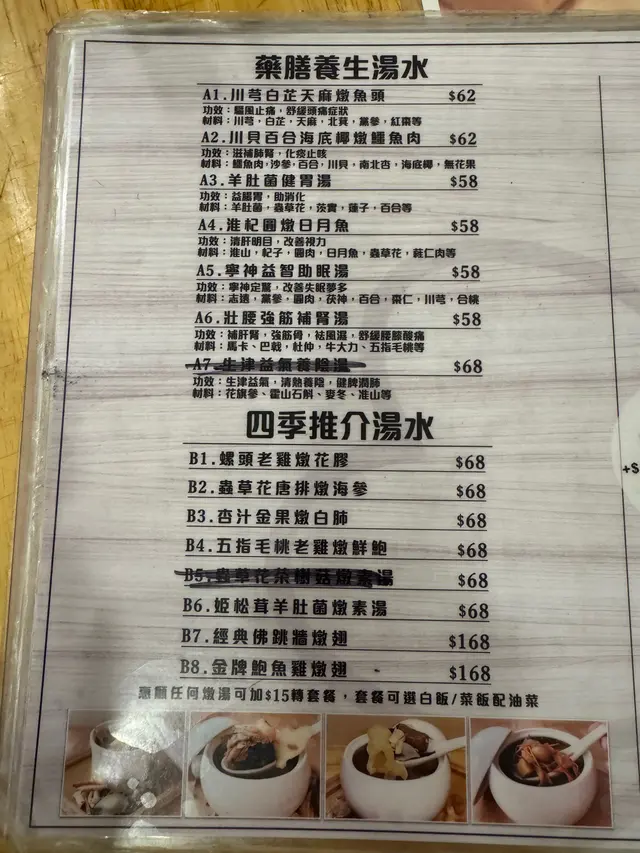 藥膳養生湯水
A1.川芎白芷天麻燉魚頭 $62
功效：驅風止痛，舒緩頭痛症狀
材料：川芎，白芷，天麻，北芪，黨參，紅棗等
A2.川貝百合海底椰燉鱷魚肉 $62
功效：滋補肺腎，化痰止咳
材料：鱷魚肉，沙參，百合，川貝，南北杏，海底椰，無花果
A3.羊肚菌健胃湯 $58
功效：益腸胃，助消化
材料：羊肚菌，蟲草花，茨實，蓮子，百合等
A4.淮杞圓燉日月魚 $58
功效：清肝明目，改善視力
材料：淮山，杞子，圓肉，日月魚，蟲草花，蕤仁肉等
A5.寧神益智助眠湯 $58
功效：寧神定驚，改善失眠夢多
材料：志遠，黨參，圓肉，茯神，百合，棗仁，川芎，合桃
A6.壯腰強筋補腎湯 $58
功效：補肝腎，強筋骨，袪風濕，舒緩腰膝酸痛
材料：馬卡、巴戟，杜仲，牛大力、五指毛桃等
A7.生津益氣養陰湯 $68
功效：生津益氣，清熱養陰，健脾潤肺
材料：花旗參、霍山石斛、麥冬、准山等
四季推介湯水
B1.螺頭老雞燉花膠 $68
B2.蟲草花唐排燉海參 $68
B3.杏汁金果燉白肺 $68
B4.五指毛桃老雞燉鮮鮑 $68
B5.蟲草花茶樹菇燉素湯 $68
B6.姬松茸羊肚菌燉素湯 $68
B7.經典佛跳牆燉翅 $168
B8.金牌鮑魚雞燉翅 $168
惠顧任何燉湯可加$15轉套餐，套餐可選白飯/菜飯配油菜
+$